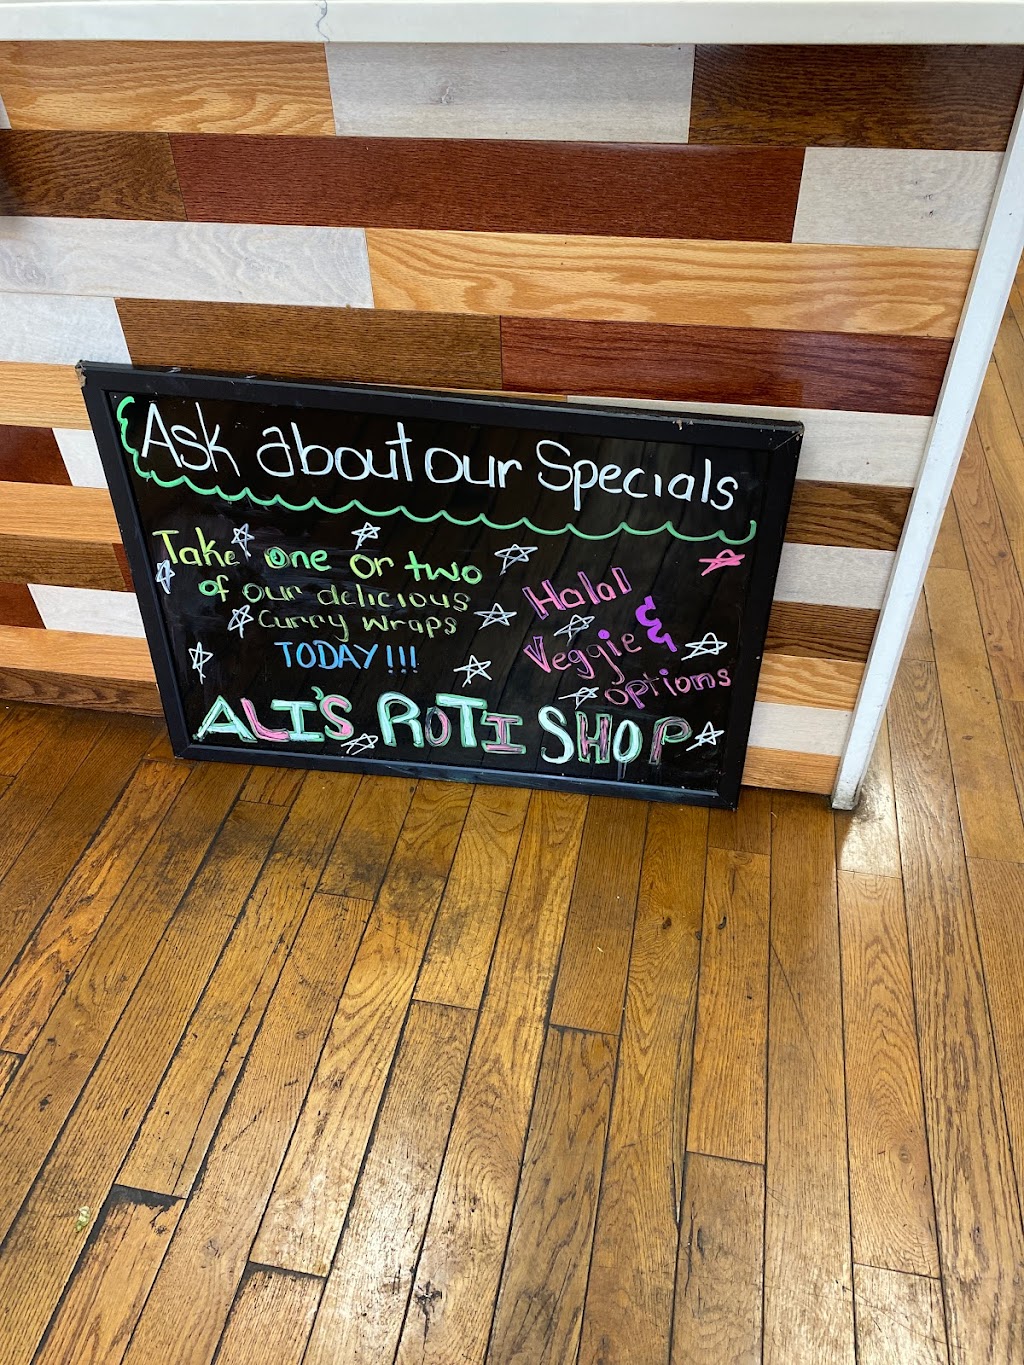 Ask about our Specials
Take one or two
of our delicious
Curry Wraps
TODAY!!!
Halal
&
Veggie
options
ALI'S ROTI SHOP